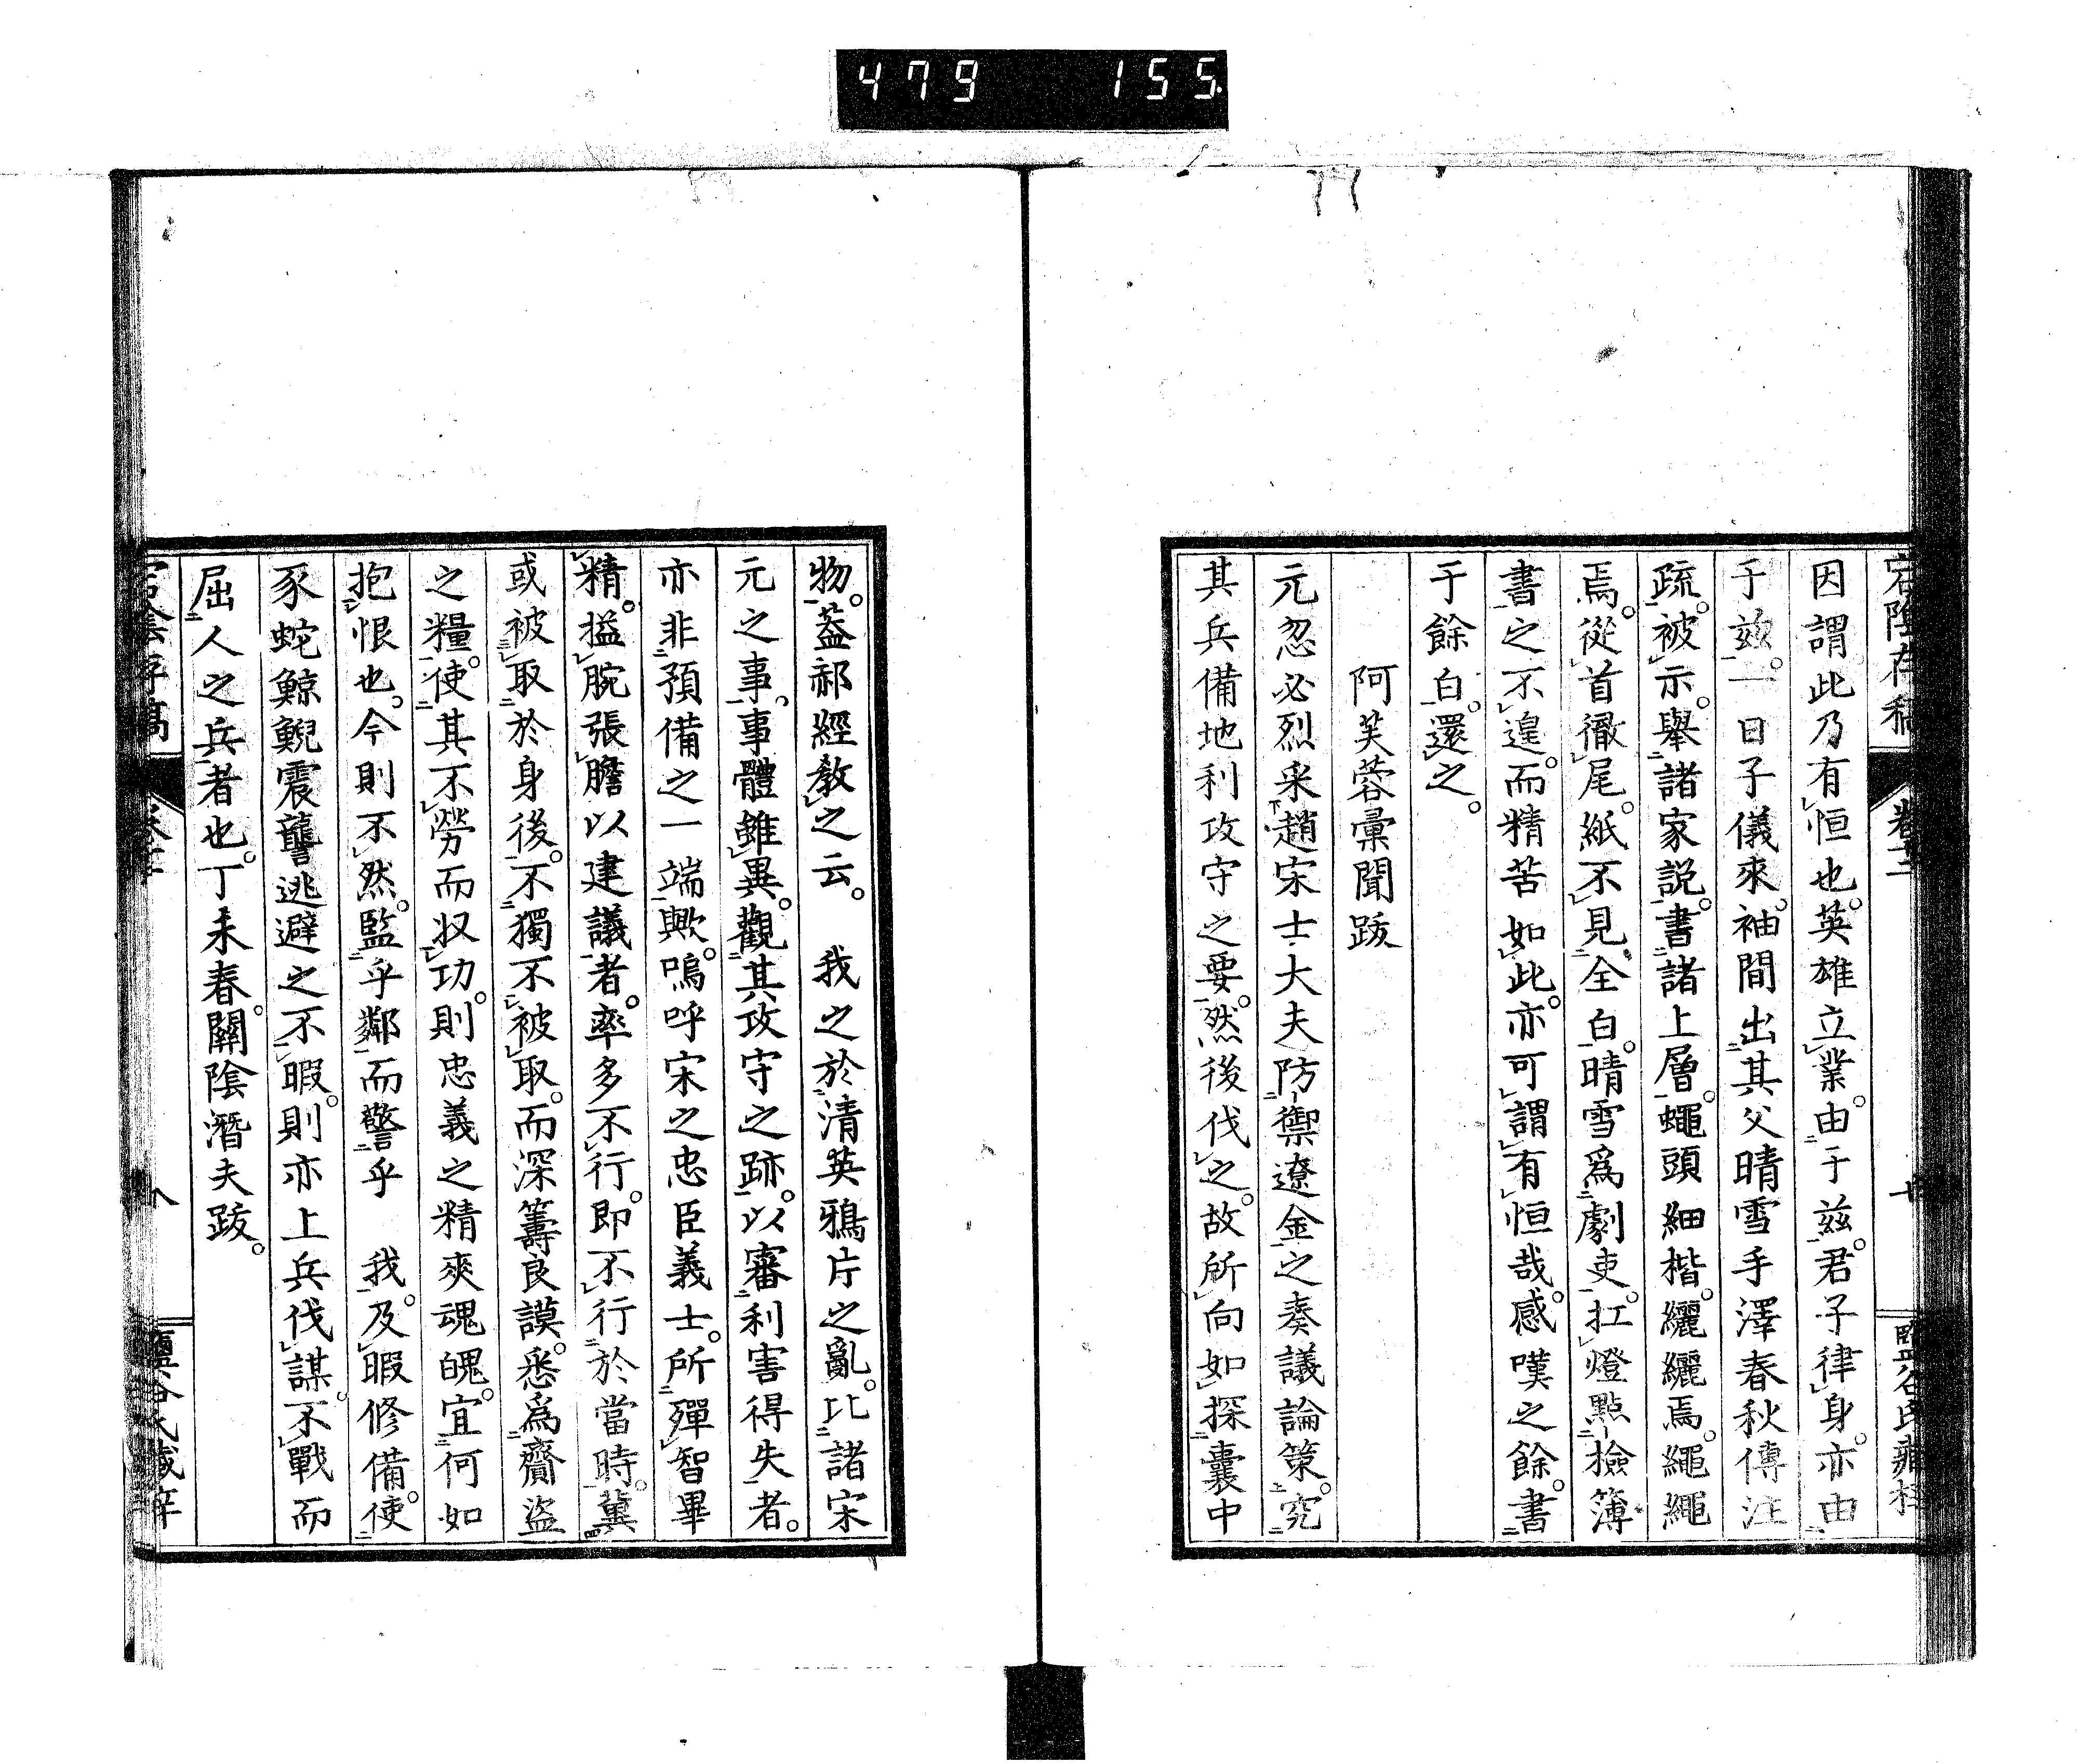 479 155
因謂此乃有恒也。英雄立業。由于兹。君子律身。亦由
于兹。一日子儀來。袖間出其父晴雪手澤春秋傳注
疏。被示。舉諸家説。書諸上層。蠅頭細楷。纚纚焉。繩繩
焉。從首徹尾。紙不見全白。晴雪爲劇吏。扛燈點檢簿
書之不遑。而精苦如此。亦可謂有恒哉。感嘆之餘。書
于餘白。還之。
阿芙蓉彙聞跋
元忽必烈采趙宋士大夫防禦遼金之奏議論策。究
其兵備地利攻守之要。然後伐之。故所向如探囊中
物。蓋郝經教之云。 我之於清英鴉片之亂。比諸宋
元之事。事體雖異。觀其攻守之跡。以審利害得失者。
亦非預備之一端歟。嗚呼宋之忠臣義士。所殫智畢
精。搤腕張膽以建議者。率多不行。即不行於當時。冀
或被取於身後。不獨不被取。而深籌良謨。悉爲齎盗
之糧。使其不勞而収功。則忠義之精爽魂魄。宜何如
抱恨也。今則不然。監乎鄰而警乎 我。及暇修備。使
豕蛇鯨鯢震讋逃避之不暇。則亦上兵伐謀。不戰而
屈人之兵者也。丁未春。關陰潛夫跋。